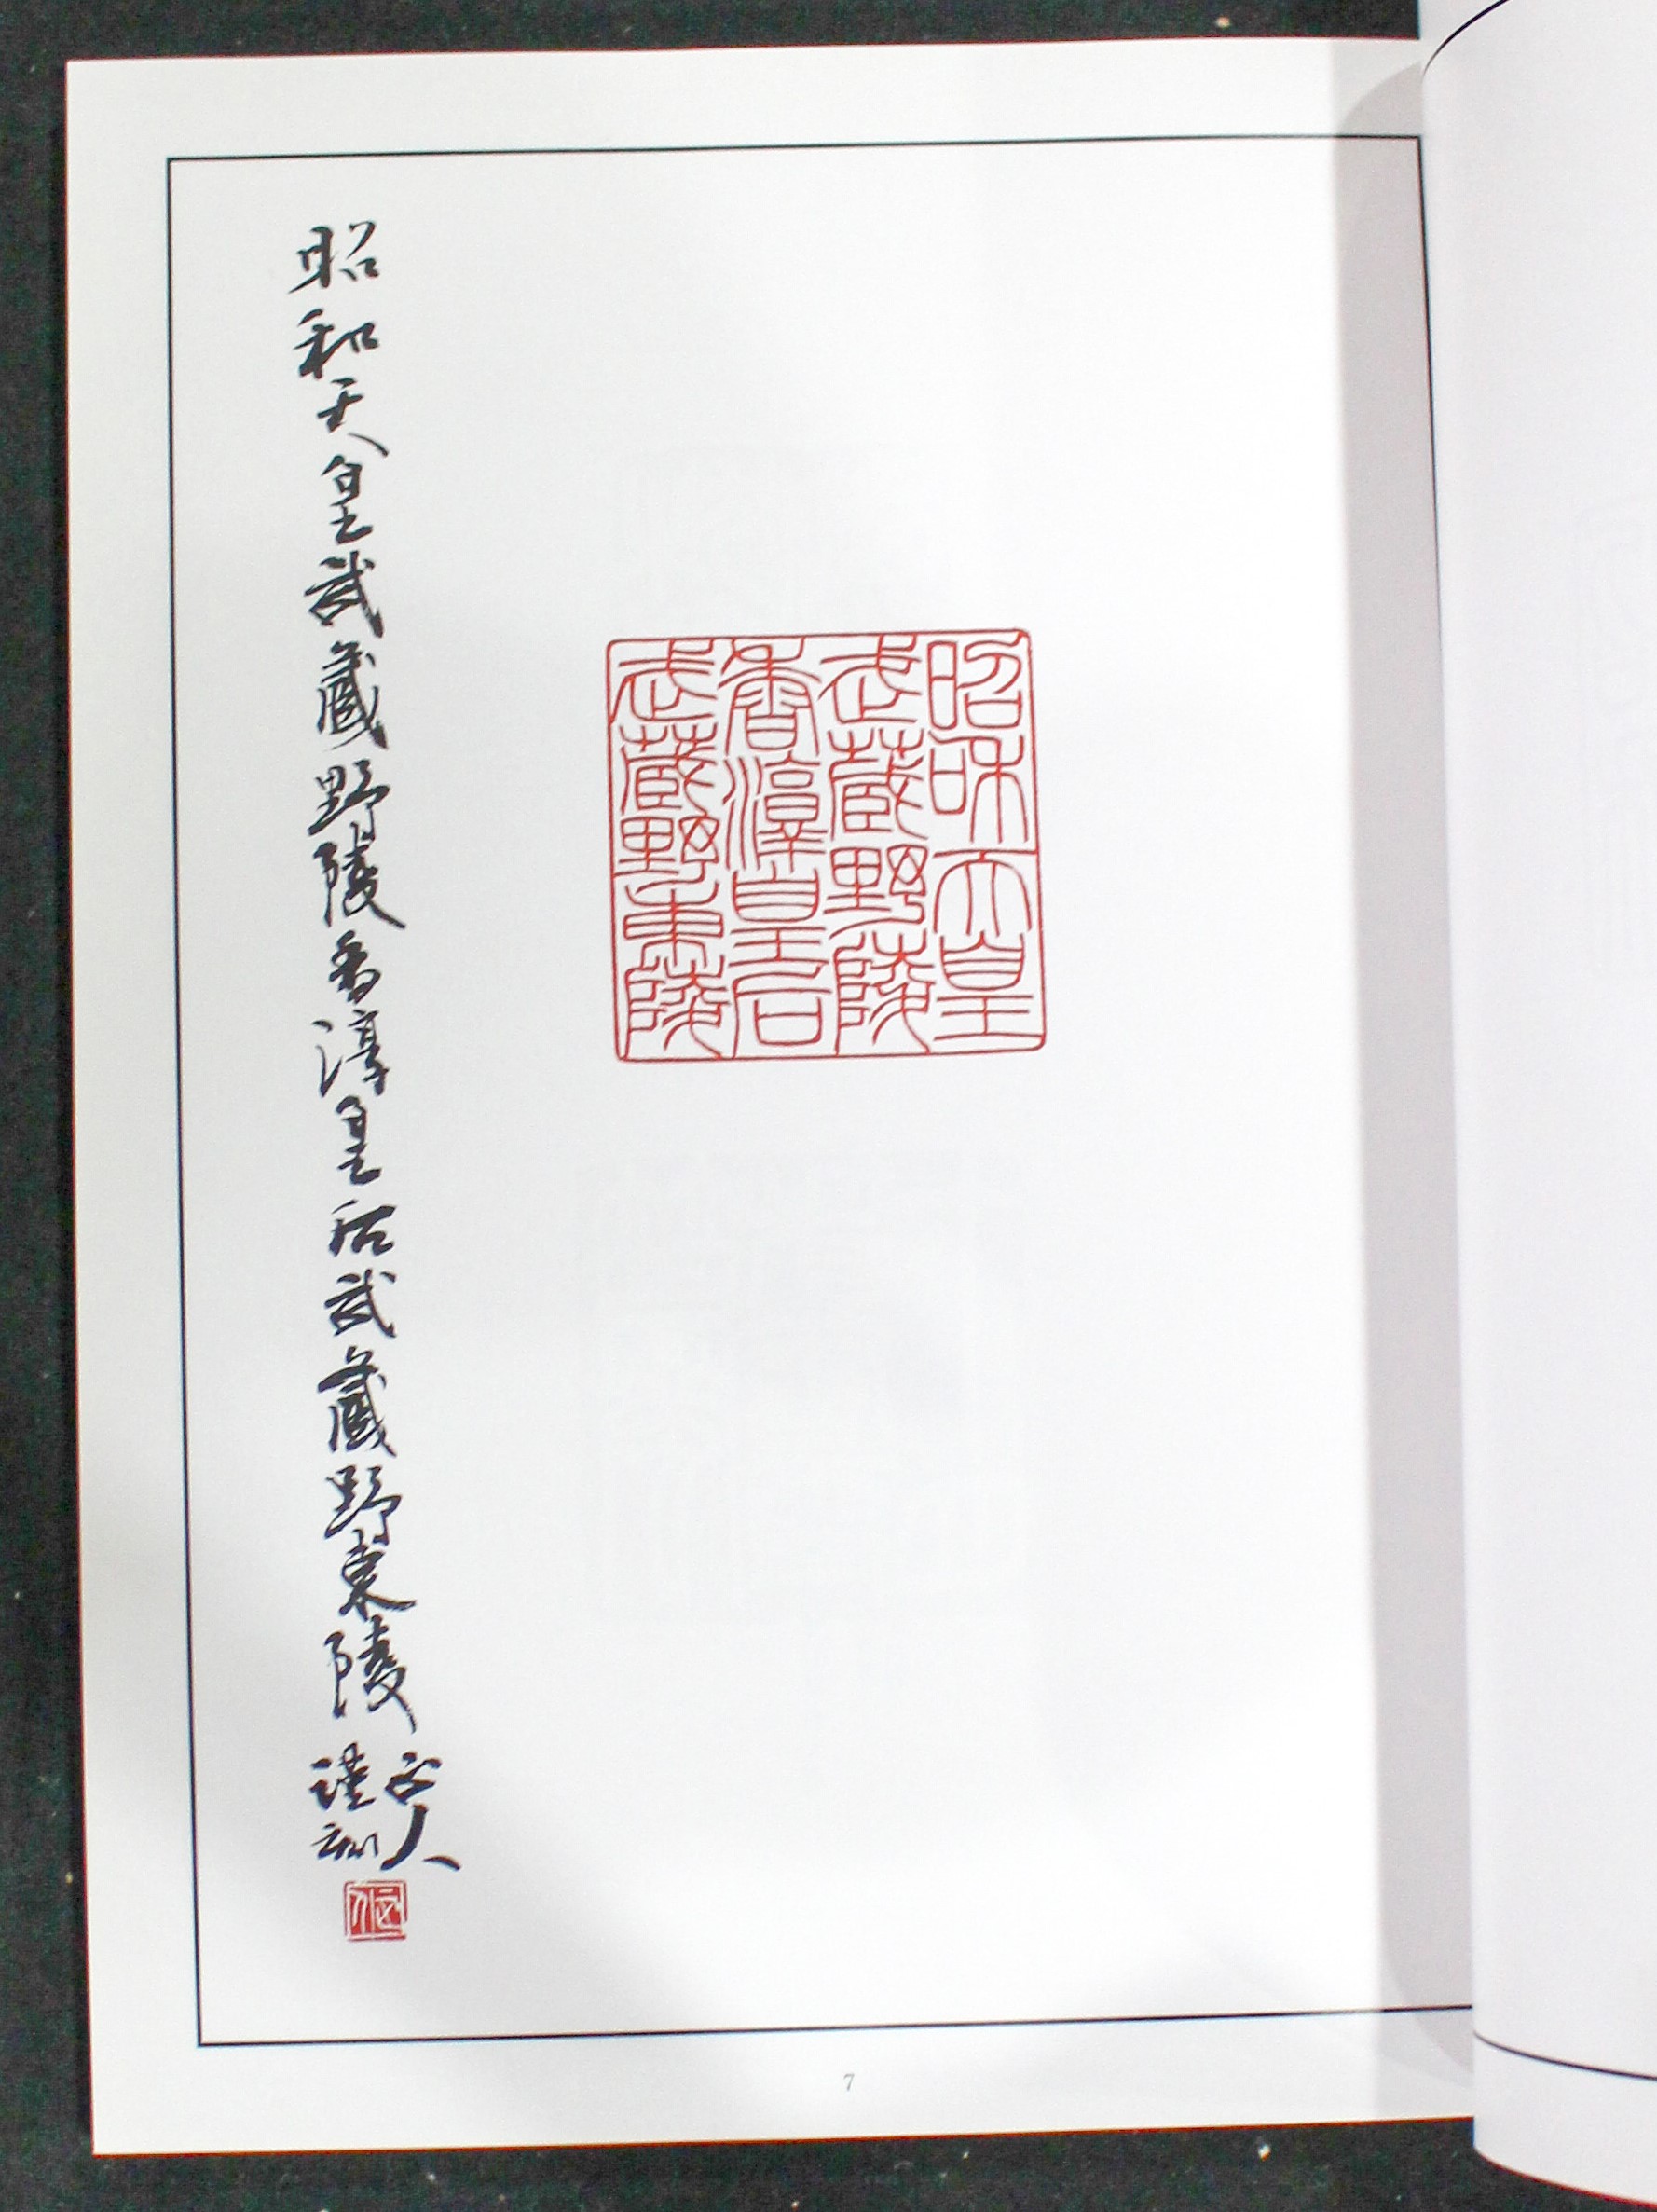 昭和天皇
武蔵野陵
香淳皇后
武蔵野東陵
昭和天皇武蔵野陵香淳皇后武蔵野東陵
人
謹刻
7